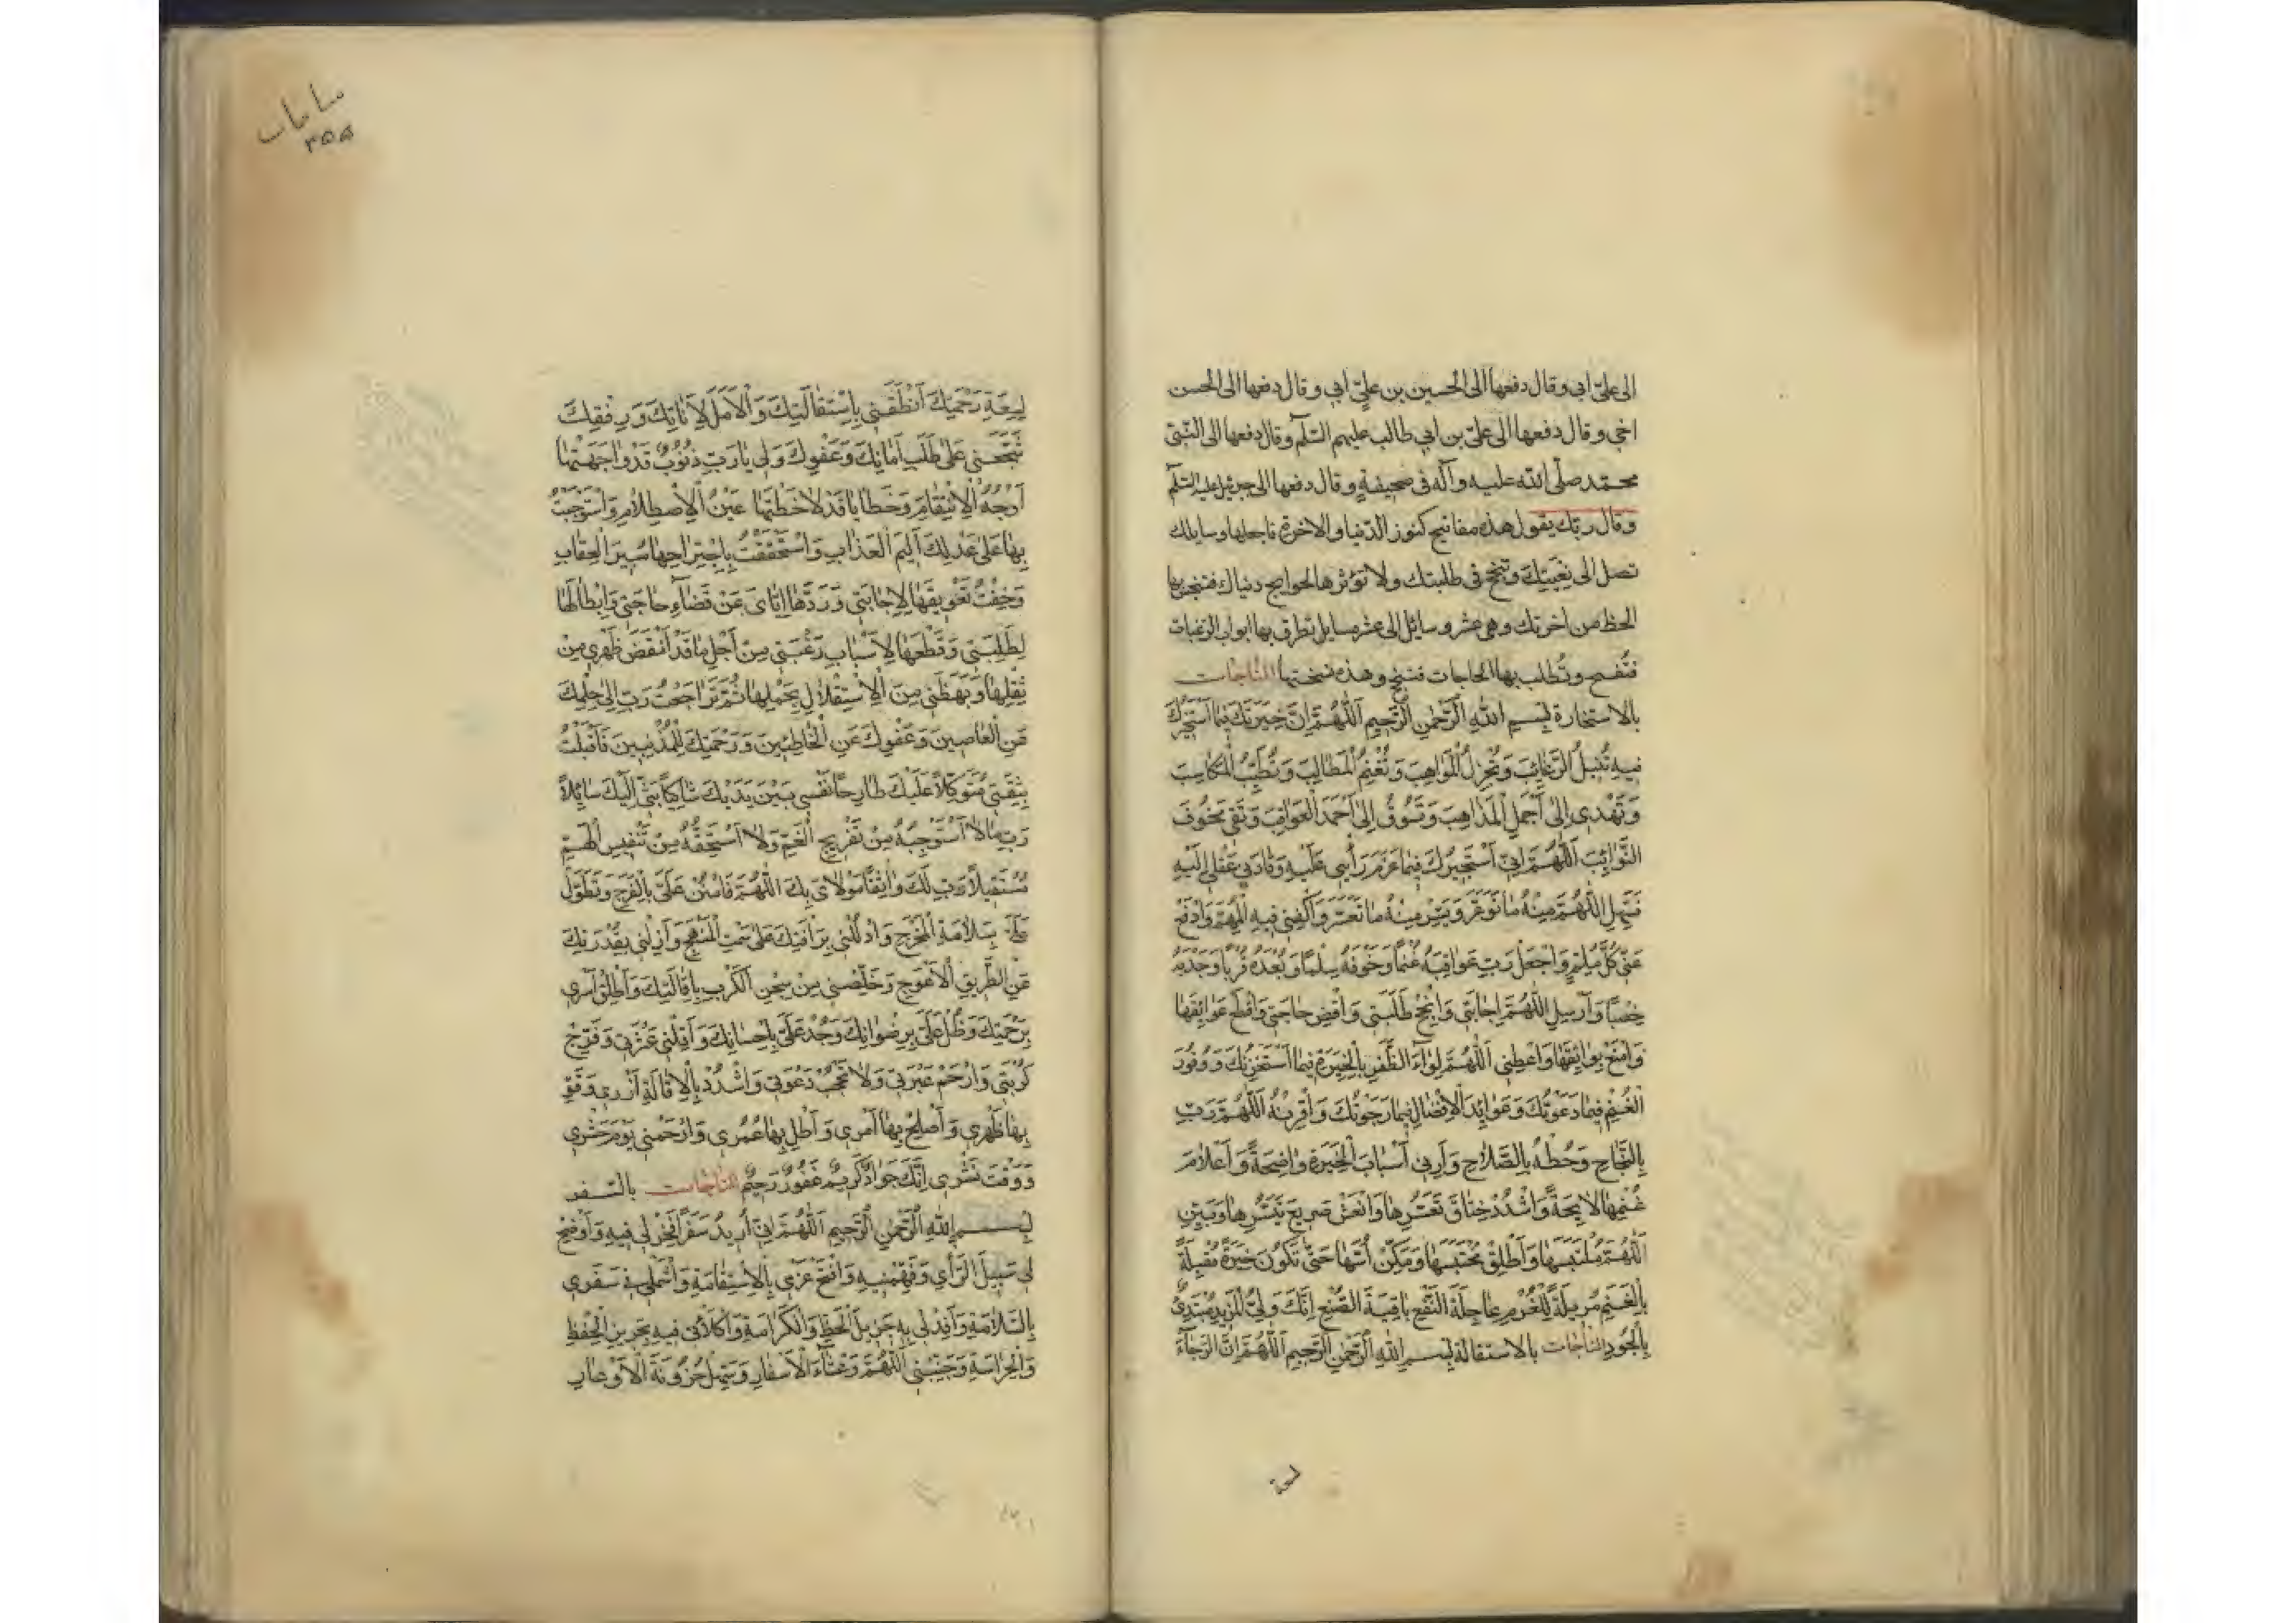 الى علىّ ابى وقال دفعها الى الحسين بن علىّ ابى وقال دفعها الى الحسن
اخى وقال دفعها الى علىّ بن ابى طالب عليهم السّلم وقال دفعها الى النّبىّ
محمّد صلّى الله عليه وآله فى صحيفةٍ وقال دفعها الى جبرئيل عليه السّلم
وقال ربّك يقول هذه مفاتيح كنوز الدّنيا والاخرة فاجعلها وسايلك
تصل الى بغيتك وتنجح فى طلبتك ولا تؤثرها لحوايج دنياك فتبخس بها
الحظ من اخرتك وهى عشر وسائل الى عشر مسايل تطرق بها ابواب الرّغبات
فتُفتح وتُطلب بها الحاجات فتنجح وهذه نسختها المناجات
بالاستخارة بِسمِ اللهِ الرَّحمنِ الرَّحيمِ اَللّهُمَّ اِنَّ خِيَرَتَكَ فيمَا اَسْتَخيرُكَ
فيهِ تُنيلُ الرَّغائِبَ وَتُجْزِلُ الْمَواهِبَ وَتُغْنِمُ الْمَطالِبَ وَتُطَيِّبُ الْمَكاسِبَ
وَتَهْدى اِلى اَجْمَلِ الْمَذاهِبِ وَتَسُوقُ اِلى اَحْمَدِ الْعَواقِبِ وَتَقى مَخُوفَ
النَّوائِبِ اَللّهُمَّ اِنّى اَسْتَخيرُكَ فيما عَزَمَ رَأْيى عَلَيْهِ وَقادَنى عَقْلى اِلَيْهِ
فَسَهِّلِ اللّهُمَّ مِنْهُ ما تَوَعَّرَ وَيَسِّرْ مِنْهُ ما تَعَسَّرَ وَاكْفِنى فيهِ الْمُهِمَّ وَادْفَعْ
عَنّى كُلَّ مُلِمٍّ وَاجْعَلْ رَبِّ عَواقِبَهُ غُنْمًا وَخَوْفَهُ سِلْمًا وَبُعْدَهُ قُرْبًا وَجَدْبَهُ
خِصْبًا وَاَرْسِلِ اللّهُمَّ اِجابَتى وَاَنْجِحْ طَلِبَتى وَاقْضِ حاجَتى وَاقْطَعْ عَوائِقَها
وَامْنَعْ بَوائِقَها وَاَعْطِنى اَللّهُمَّ لِواءَ الظَّفَرِ بِالْخِيَرَةِ فيمَا اسْتَخَرْتُكَ وَوُفُورَ
الْغُنْمِ فيما دَعَوْتُكَ وَعَوائِدَ الْاِفْضالِ فيما رَجَوْتُكَ وَاقْرِنْهُ اَللّهُمَّ رَبِّ
بِالنَّجاحِ وَحُطْهُ بِالصَّلاحِ وَاَرِنى اَسْبابَ الْخِيَرَةِ واضِحَةً وَاَعْلامَ
غُنْمِها لايِحَةً وَاشْدُدْ خِناقَ تَعَسُّرِها وَانْعَشْ صَريعَ تَيَسُّرِها وَبَيِّنِ
اَللّهُمَّ مُلْتَبَسَها وَاَطْلِقْ مُحْتَبَسَها وَمَكِّنْ اُسَّها حَتّى تَكُونَ خِيَرَةً مُقْبِلَةً
بِالْغُنْمِ مُزيلَةً لِلْغُرْمِ عاجِلَةَ النَّفْعِ باقِيَةَ الصُّنْعِ اِنَّكَ وَلِىُّ الْمَزيدِ مُبْتَدِئٌ
بِالْجُودِ المناجات بالاستقالة بِسمِ اللهِ الرَّحمنِ الرَّحيمِ اَللّهُمَّ اِنَّ الرَّجاءَ
لسعة
لِسَعَةِ رَحْمَتِكَ اَنْطَقَنى بِاسْتِقالَتِكَ وَالْاَمَلَ لِاَناتِكَ وَرِفْقِكَ
شَجَّعَنى عَلى طَلَبِ اَمانِكَ وَعَفْوِكَ وَلى يا رَبِّ ذُنُوبٌ قَدْ واجَهَتْها
اَوْجُهُ الْاِنْتِقامِ وَخَطايا قَدْ لاحَظَتْها عَيْنُ الْاِصْطِلامِ وَاسْتَوْجَبْتُ
بِها عَلى عَدْلِكَ اَليمَ الْعَذابِ وَاسْتَحْقَقْتُ بِاجْتِراحِها مُبيرَ الْعِقابِ
وَخِفْتُ تَعْويقَها لِاِجابَتى وَرَدَّها اِيّاىَ عَنْ قَضاءِ حاجَتى وَاِبْطالَها
لِطَلِبَتى وَقَطْعَها لِاَسْبابِ رَغْبَتى مِنْ اَجْلِ ما قَدْ اَنْقَضَ ظَهْرى مِنْ
ثِقْلِها وَبَهَظَنى مِنَ الْاِسْتِقْلالِ بِحَمْلِها ثُمَّ تَراجَعْتُ رَبِّ اِلى حِلْمِكَ
عَنِ الْعاصينَ وَعَفْوِكَ عَنِ الْخاطِئينَ وَرَحْمَتِكَ لِلْمُذْنِبينَ فَاَقْبَلْتُ
بِثِقَتى مُتَوَكِّلاً عَلَيْكَ طارِحًا نَفْسى بَيْنَ يَدَيْكَ شاكِيًا بَثّى اِلَيْكَ سائِلاً
رَبِّ ما لا اَسْتَوْجِبُهُ مِنْ تَفْريجِ الْغَمِّ وَلا اَسْتَحِقُّهُ مِنْ تَنْفيسِ الْهَمِّ
مُسْتَقيلاً رَبِّ لَكَ واثِقًا مَوْلاىَ بِكَ اَللّهُمَّ فَامْنُنْ عَلَىَّ بِالْفَرَجِ وَتَطَوَّلْ
عَلَىَّ بِسَلامَةِ الْمَخْرَجِ وَادْلُلْنى بِرَأْفَتِكَ عَلى سَمْتِ الْمَنْهَجِ وَاَزِلْنى بِقُدْرَتِكَ
عَنِ الطَّريقِ الْاَعْوَجِ وَخَلِّصْنى مِنْ سِجْنِ الْكَرْبِ بِاِقالَتِكَ وَاَطْلِقْ اَسْرى
بِرَحْمَتِكَ وَطُلْ عَلَىَّ بِرِضْوانِكَ وَجُدْ عَلَىَّ بِاِحْسانِكَ وَاَقِلْنى عَثْرَتى وَفَرِّجْ
كُرْبَتى وَارْحَمْ عَبْرَتى وَلا تَحْجُبْ دَعْوَتى وَاشْدُدْ بِالْاِقالَةِ اَزْرى وَقَوِّ
بِها ظَهْرى وَاَصْلِحْ بِها اَمْرى وَاَطِلْ بِها عُمُرى وَارْحَمْنى يَوْمَ حَشْرى
وَوَقْتَ نَشْرى اِنَّكَ جَوادٌ كَريمٌ غَفُورٌ رَحيمٌ المناجات بالسّفر
بِسمِ اللهِ الرَّحمنِ الرَّحيمِ اَللّهُمَّ اِنّى اُريدُ سَفَرًا فَخِرْ لى فيهِ وَاَوْضِحْ
لى سَبيلَ الرَّأْىِ وَفَهِّمْنيهِ وَافْتَحْ عَزْمى بِالْاِسْتِقامَةِ وَاشْمَلْنى فى سَفَرى
بِالسَّلامَةِ وَاَفِدْ لى بِهِ جَزيلَ الْحَظِّ وَالْكَرامَةِ وَاكْلَأْنى فيهِ بِحَريزِ الْحِفْظِ
وَالْحِراسَةِ وَجَنِّبْنى اَللّهُمَّ وَعْثاءَ الْاَسْفارِ وَسَهِّلْ حُزُونَةَ الْاَوْعارِ